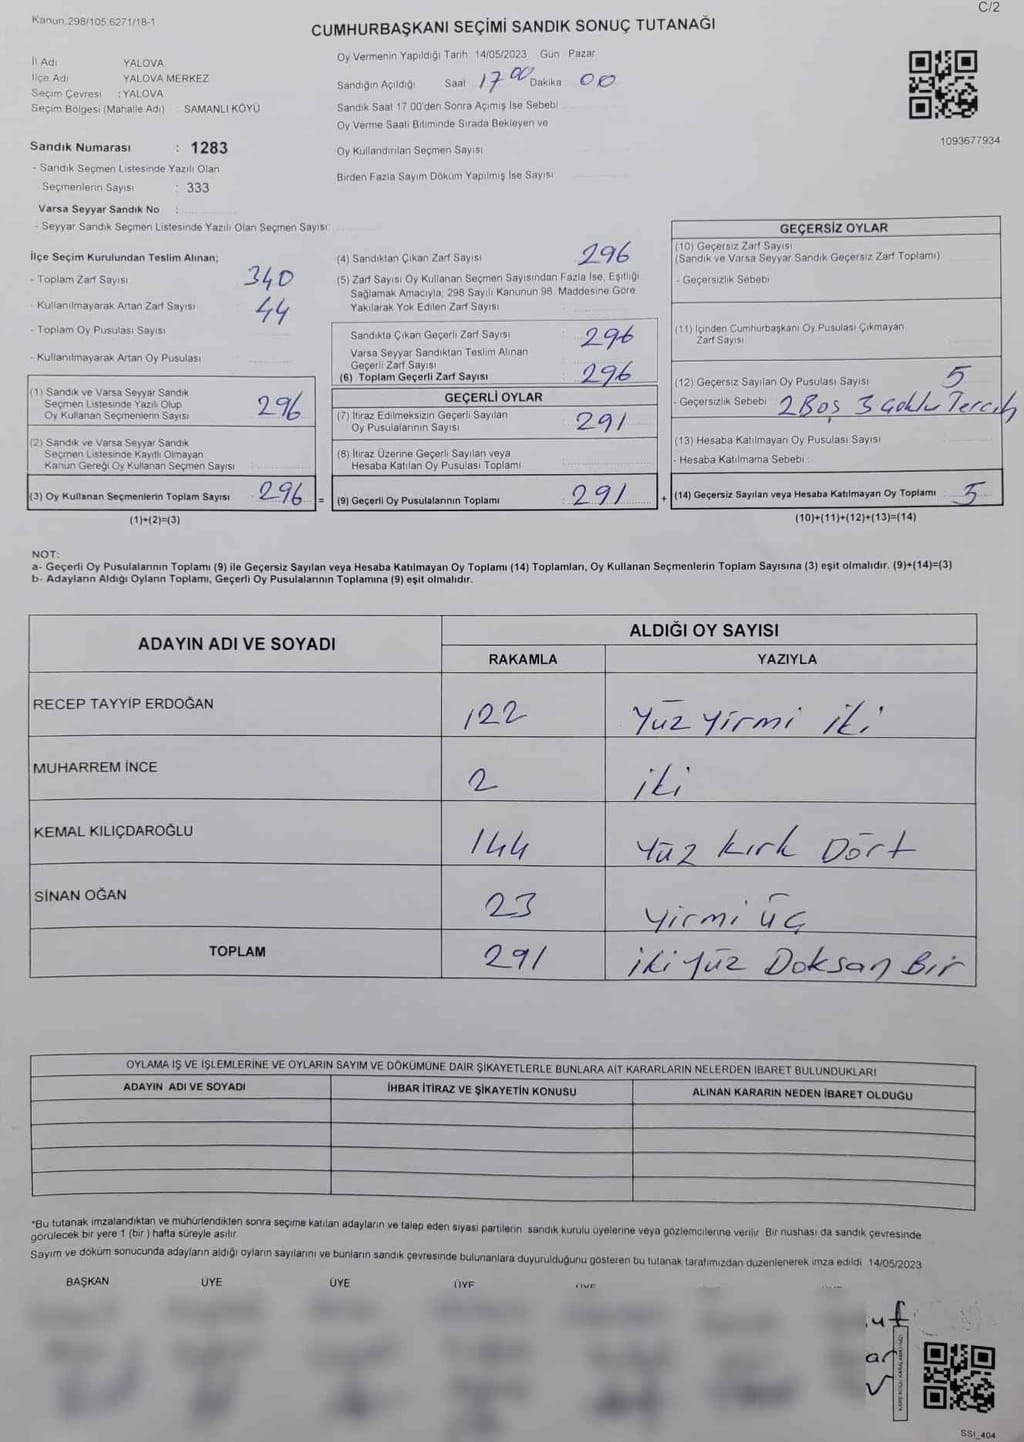 Kanun.298/105.6271/18-1
C/2
CUMHURBAŞKANI SEÇİMİ SANDIK SONUÇ TUTANAĞI
İl Adı YALOVA
İlçe Adı YALOVA MERKEZ
Seçim Çevresi : YALOVA
Seçim Bölgesi (Mahalle Adı) SAMANLI KÖYÜ
Sandık Numarası : 1283
- Sandık Seçmen Listesinde Yazılı Olan
Seçmenlerin Sayısı : 333
Varsa Seyyar Sandık No :
- Seyyar Sandık Seçmen Listesinde Yazılı Olan Seçmen Sayısı
Oy Vermenin Yapıldığı Tarih 14/05/2023 Gün Pazar
Sandığın Açıldığı Saat 17 00 Dakika 00
Sandık Saat 17 00'den Sonra Açımış İse Sebebi
Oy Verme Saati Bitiminde Sırada Bekleyen ve
Oy Kullandırılan Seçmen Sayısı
Birden Fazla Sayım Döküm Yapılmış İse Sayısı
1093677934
İlçe Seçim Kurulundan Teslim Alınan;
- Toplam Zarf Sayısı 340
- Kullanılmayarak Artan Zarf Sayısı 44
- Toplam Oy Pusulası Sayısı
- Kullanılmayarak Artan Oy Pusulası
(1) Sandık ve Varsa Seyyar Sandık
Seçmen Listesinde Yazılı Olup
Oy Kullanan Seçmenlerin Sayısı 296
(2) Sandık ve Varsa Seyyar Sandık
Seçmen Listesinde Kayıtlı Olmayan
Kanun Gereği Oy Kullanan Seçmen Sayısı
(3) Oy Kullanan Seçmenlerin Toplam Sayısı 296 =
(1)+(2)=(3)
(4) Sandıktan Çıkan Zarf Sayısı 296
(5) Zarf Sayısı Oy Kullanan Seçmen Sayısından Fazla İse, Eşitliği
Sağlamak Amacıyla; 298 Sayılı Kanunun 98. Maddesine Göre
Yakılarak Yok Edilen Zarf Sayısı
Sandıkta Çıkan Geçerli Zarf Sayısı 296
Varsa Seyyar Sandıktan Teslim Alınan
Geçerli Zarf Sayısı
(6) Toplam Geçerli Zarf Sayısı 296
GEÇERLİ OYLAR
(7) İtiraz Edilmeksizin Geçerli Sayılan
Oy Pusulalarının Sayısı 291
(8) İtiraz Üzerine Geçerli Sayılan veya
Hesaba Katılan Oy Pusulası Toplamı
(9) Geçerli Oy Pusulalarının Toplamı 291 +
GEÇERSİZ OYLAR
(10) Geçersiz Zarf Sayısı
(Sandık ve Varsa Seyyar Sandık Geçersiz Zarf Toplamı)
- Geçersizlik Sebebi
(11) İçinden Cumhurbaşkanı Oy Pusulası Çıkmayan
Zarf Sayısı
(12) Geçersiz Sayılan Oy Pusulası Sayısı 5
- Geçersizlik Sebebi 2 Boş 3 Çoklu Tercih
(13) Hesaba Katılmayan Oy Pusulası Sayısı
- Hesaba Katılmama Sebebi :
(14) Geçersiz Sayılan veya Hesaba Katılmayan Oy Toplamı 5
(10)+(11)+(12)+(13)=(14)
NOT:
a- Geçerli Oy Pusulalarının Toplamı (9) ile Geçersiz Sayılan veya Hesaba Katılmayan Oy Toplamı (14) Toplamları, Oy Kullanan Seçmenlerin Toplam Sayısına (3) eşit olmalıdır. (9)+(14)=(3)
b- Adayların Aldığı Oyların Toplamı, Geçerli Oy Pusulalarının Toplamına (9) eşit olmalıdır.
ADAYIN ADI VE SOYADI
ALDIĞI OY SAYISI
RAKAMLA YAZIYLA
RECEP TAYYİP ERDOĞAN 122 Yüz Yirmi iki
MUHARREM İNCE 2 iki
KEMAL KILIÇDAROĞLU 144 Yüz Kırk Dört
SİNAN OĞAN 23 Yirmi üç
TOPLAM 291 iki Yüz Doksan Bir
OYLAMA İŞ VE İŞLEMLERİNE VE OYLARIN SAYIM VE DÖKÜMÜNE DAİR ŞİKAYETLERLE BUNLARA AİT KARARLARIN NELERDEN İBARET BULUNDUKLARI
ADAYIN ADI VE SOYADI İHBAR İTİRAZ VE ŞİKAYETİN KONUSU ALINAN KARARIN NEDEN İBARET OLDUĞU
*Bu tutanak imzalandıktan ve mühürlendikten sonra seçime katılan adayların ve talep eden siyasi partilerin sandık kurulu üyelerine veya gözlemcilerine verilir Bir nushası da sandık çevresinde
görülecek bir yere 1 (bir ) hafta süreyle asılır
Sayım ve döküm sonucunda adayların aldığı oyların sayılarını ve bunların sandık çevresinde bulunanlara duyurulduğunu gösteren bu tutanak tarafımızdan düzenlenerek imza edildi 14/05/2023
BAŞKAN ÜYE ÜYE ÜYE ÜYE
SSI_404